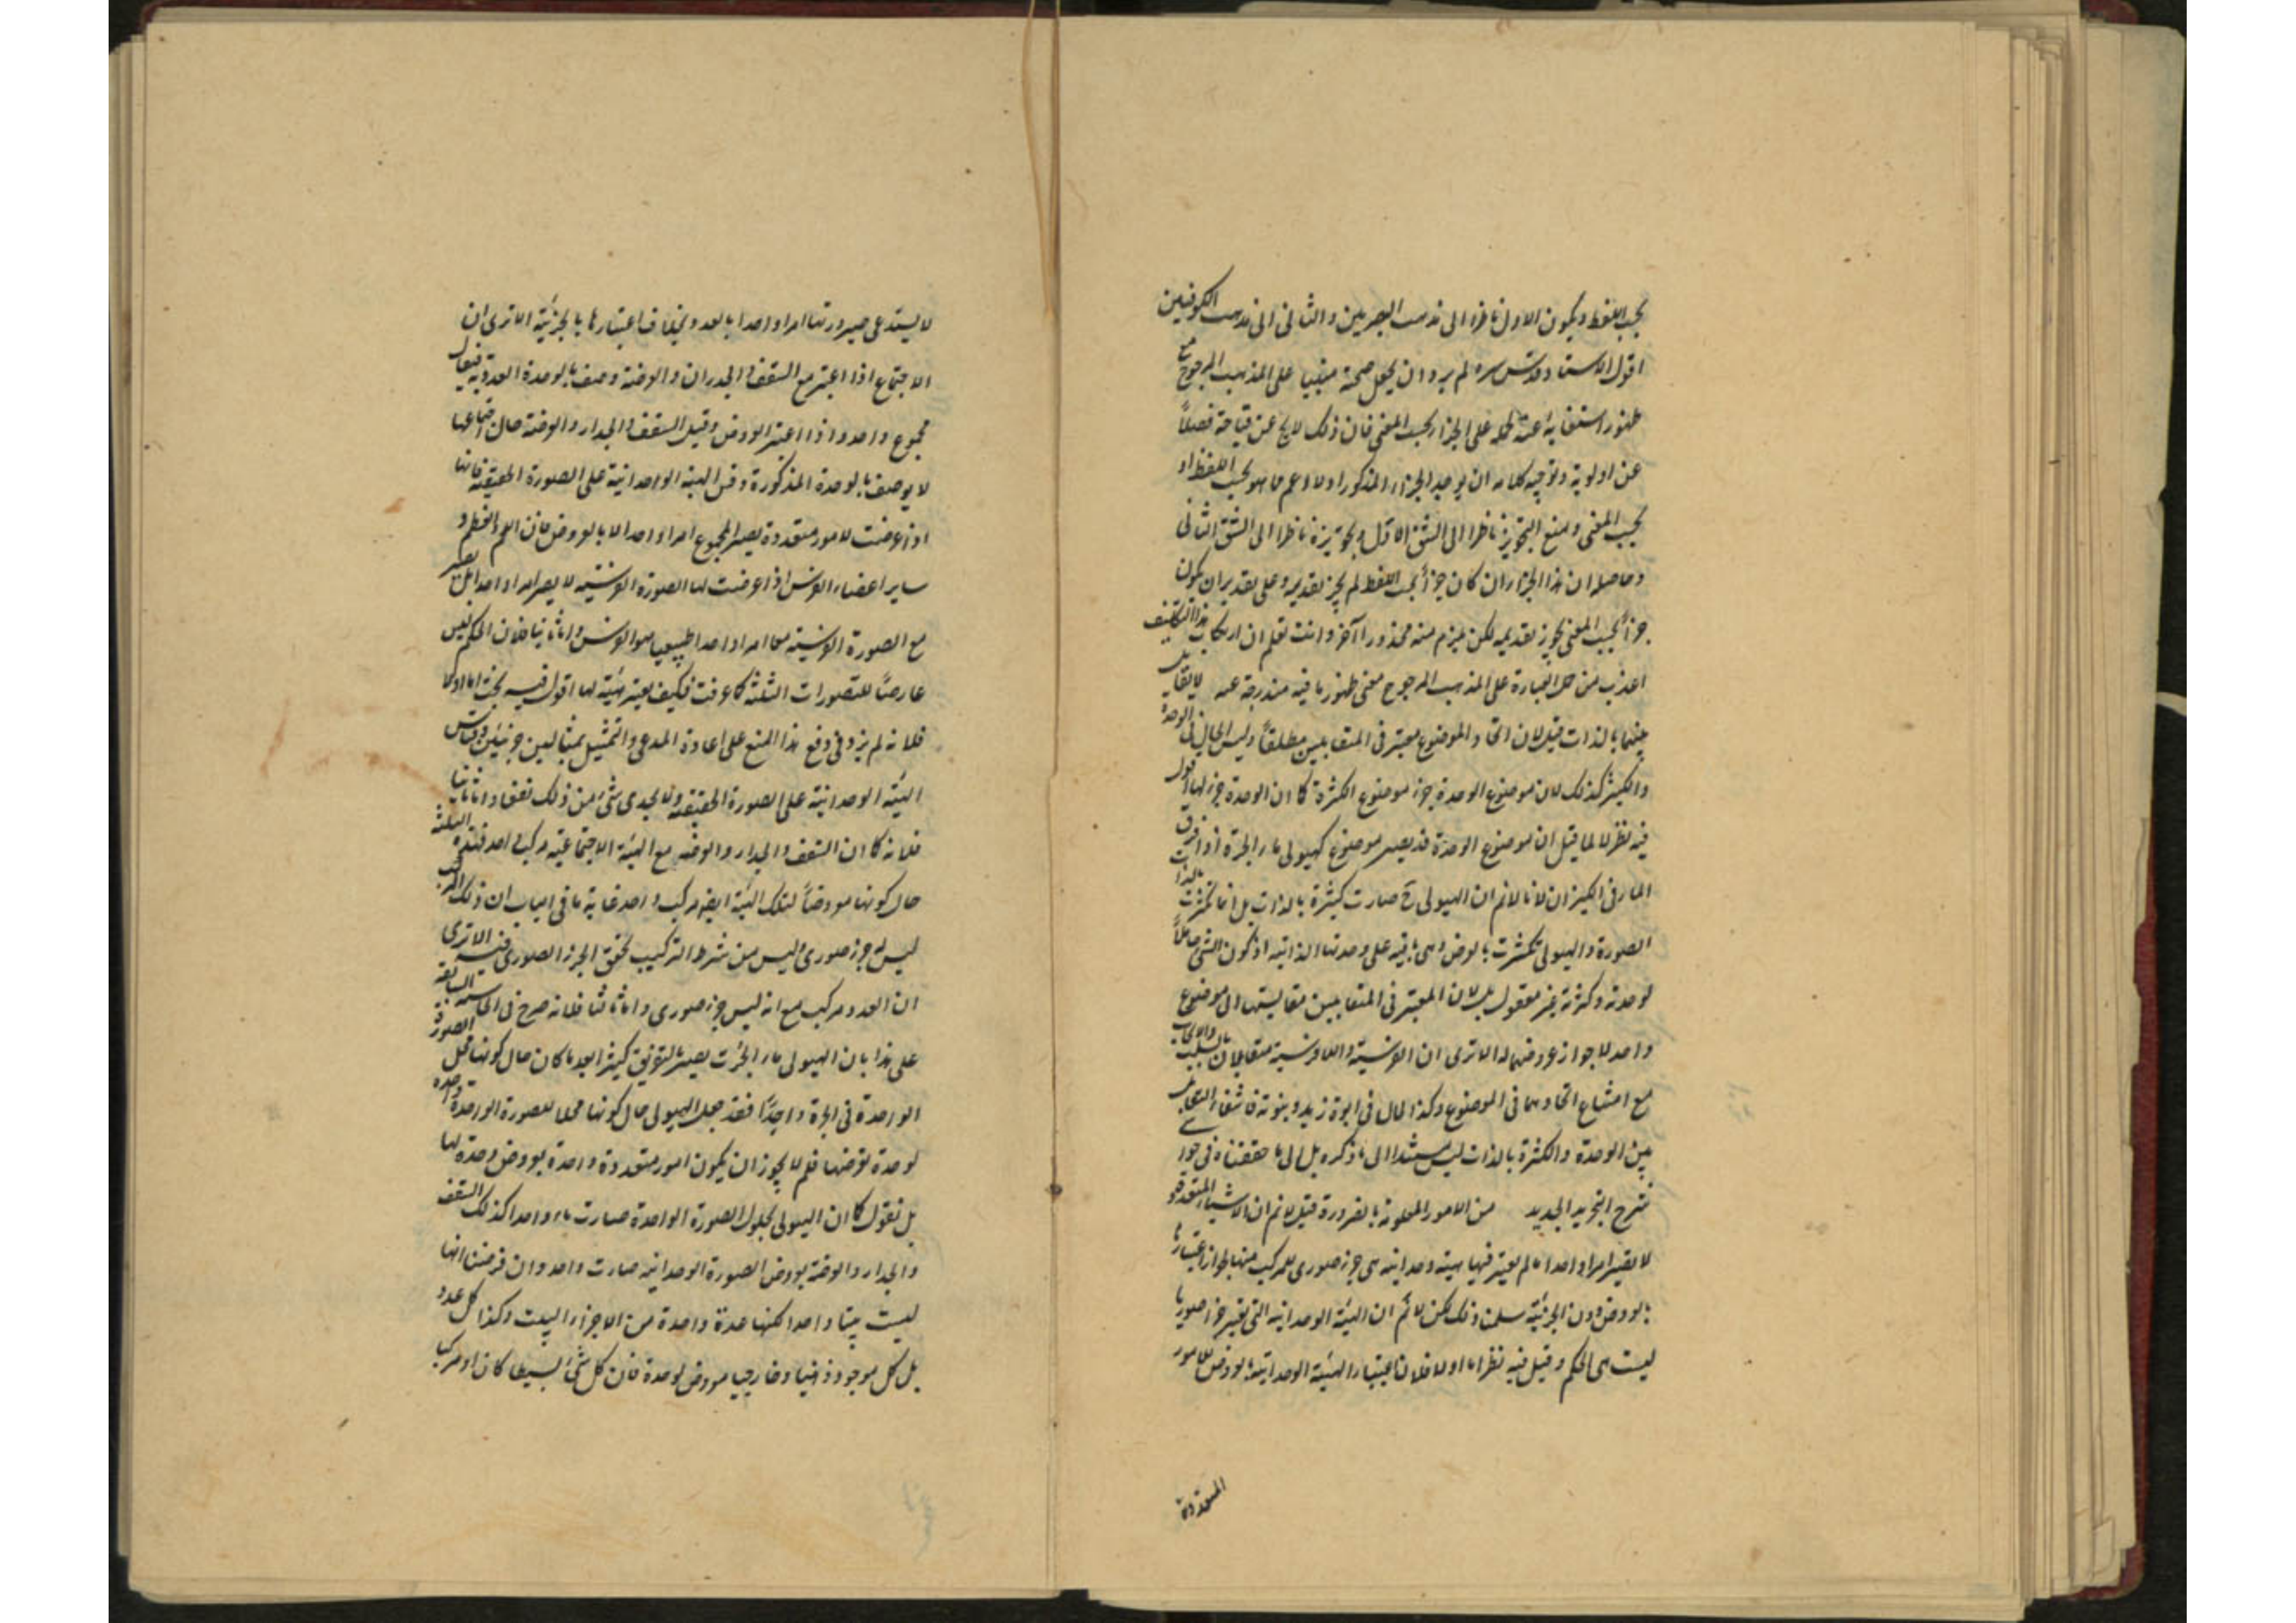 بحسب اللفظ ويكون الاول ناظرا الى مذهب البصريين والثانى الى مذهب الكوفيين
اقول الاستاد قدس سره لم يرد ان يجعل صحة مبنيا على المذهب المرجوح مع
ظهور استغنائه عنه بحمله على الجزاء بحسب المعنى فان ذلك لا يخ عن قباحة فضلاً
عن اولوية وتوجيه كلامه ان يريد الجزاء المذكور اولا اعم مما هو بحسب اللفظ او
بحسب المعنى ومنع التجويز ناظرا الى الشق الاول وتجويزه ناظرا الى الشق الثانى
وحاصله ان هذا الجزاء ان كان جزأ بحسب اللفظ لم يجز تقديره وعلى تقدير ان يكون
جزأ بحسب المعنى يجوز تقديمه لكن يلزم منه محذورا آخر وانت تعلم ان ارتكاب هذا التكليف
اعذب من حمل العبارة على المذهب المرجوح معنى ظهور ما فيه مندرجة عنه لا تقابل
بينهما بالذات قيل لان اتحاد الموضوع معتبر فى المتقابلين مطلقاً وليس الحال فى الوحدة
والكثير كذلك لان موضوع الوحدة جزء موضوع الكثرة كما ان الوحدة جزء لها اقول
فيه نظر لا لما قيل ان موضوع الوحدة قد يصير موضوع كهيولى ماء الجرة اذا فرق
الماء فى الكيزان لانا لا نم ان الهيولى ح صارت كثيرة بالذات بل انما تكثرت بالذات
الصورة والهيولى تكثرت بالعرض وهى باقية على وحدتها الذاتيه اذ كون الشئ حاملاً
لوحدته وكثرته غير معقول بل لان المعتبر فى المتقابلين مقايستها الى موضوع
واحد لا جواز عروضهما له الا ترى ان الفرسية واللافرسية متقابلان بالسلب والايجاب
مع امتناع اتحادهما فى الموضوع وكذا الحال فى ابوة زيد وبنوته فانتفاء التقابل
بين الوحدة والكثرة بالذات ليس مستندا الى ما ذكره بل الى ما حققناه فى حواشى
شرح التجريد الجديد من الامور المعلومة بالضرورة قيل لا نم ان الاشياء المتعددة
لا يصير امرا واحدا ما لم يعتبر فيها هيئة وحدانيه هى جزء صورى للمركب منها لجواز اعتبارها
بالعروض دون الجزئية سلمنا ذلك لكن لا نم ان الهيئة الوحدانيه التى تعتبر جزء صوريا
ليست هى الحكم وقيل فيه نظر اما اولا فلان اعتبار الهيئة الوحدانية بالعروض للامور
المتعددة
لا يستدعى صيرورتها امرا واحدا بالعدد بخلاف اعتبارها بالجزئية الا ترى ان
الاجتماع اذا اعتبر مع السقف والجدران والعرضة وصف بالوحدة العددية فيقال
مجموع واحد واذا اعتبر العروض وقيل السقف والجدار والعرضة حال اجتماعها
لا يوصف بالوحدة المذكورة وقس الهيئة الوحدانية على الصورة الحقيقة فانها
اذا عرضت لامور متعددة يصير المجموع امرا واحدا لا بالعروض فان اللحم والعظم و
ساير اعضاء الفرس اذا عرضت لها الصورة الفرسيه لا يصير امرا واحدا بل يصير
مع الصورة الفرسيه معا امرا واحدا طبيعيا هو الفرس واما ثانيا فلان الحكم ليس
عارضاً للتصورات الثلثة كما عرفت فكيف يعتبر هيئة لها اقول فيه بحث اما اولا
فلانه لم يزد فى دفع هذا المنع على اعادة المدعى والتمثيل بمثالين جزئيين وقياس
الهيئه الوحدانية على الصورة الحقيقة ولا يجدى شئ من ذلك نفعا واما ثانيا
فلانه كما ان السقف والجدار والعرضه مع الهيئة الاجتماعية مركب واحد فهذه الثلثة
حال كونها معروضاً لتلك الهيئة ايضا مركب واحد غاية ما فى الباب ان ذلك المركب
ليس له جزء صورى وليس من شرط التركيب تحقق الجزء الصورى فيه الا ترى
ان العدد مركب مع انه ليس جزء صورى واما ثالثا فلانه صرح فى الحاشية السابقة
على هذا بان الهيولى ماء الجرت يصير بالتفريق كثيرا بعد ما كان حال كونها محل الصورة
الواحدة فى الجرة واحِدًا فقد جعل الهيولى حال كونها محلا للصورة الواحدة واحده
لوحدة تعرضها فلم لا يجوز ان يكون امور متعددة واحدة بعروض وحدة لها
بل نقول كما ان الهيولى بحلول الصورة الواحدة صارت ماء واحدا كذلك السقف
والجدار والعرضة بعروض الصورة الوحدانيه صارت واحد وان فرضنا انها
ليست بيتا واحدا لكنها عدة واحدة من الاجزاء البيت وكذا كل عدد
بل كل موجود ذهنيا وخارجيا معروض لوحدة فان كل شئ بسيطا كان او مركبا